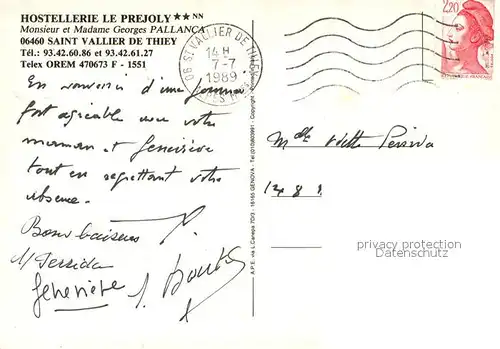 HOSTELLERIE LE PREJOLY ★★ NN
Monsieur et Madame Georges PALLANCA
06460 SAINT VALLIER DE THIEY
Tél.: 93.42.60.86 et 93.42.61.27
Telex OREM 470673 F - 1551
En souvenir d'une journée
fort agréable avec votre
maman et Geneviève
tout en regrettant votre
absence.
Bons baisers
Geneviève
06 ST VALLIER DE THIEY
14 H
7-7
1989
2,20
A.P.E. via L. Canepa 13/G - 16165 GENOVA - Tel. (010)803991 - Copyright
Mlle
privacy protection
Datenschutz